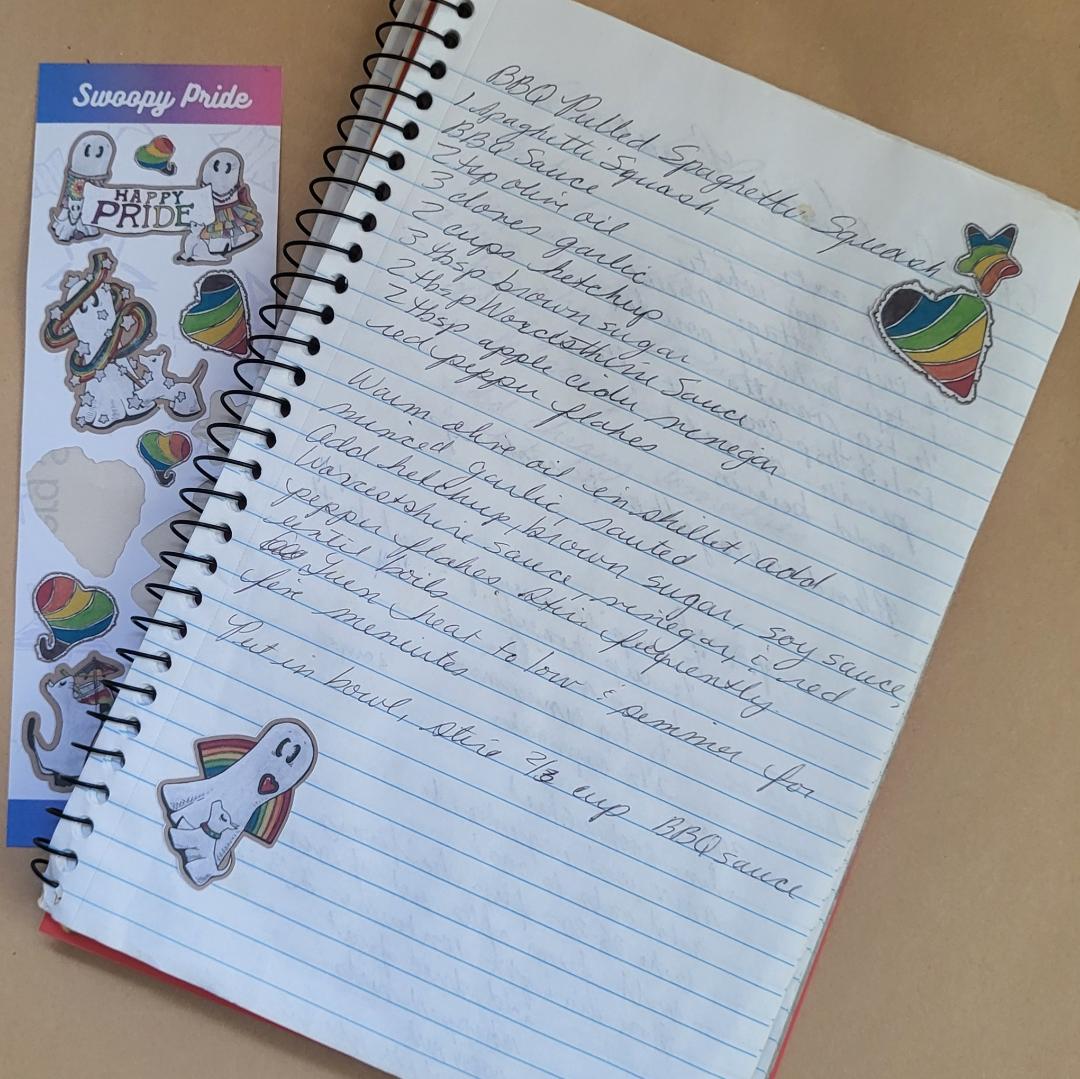 Swoopy Pride
HAPPY
PRIDE
BBQ Pulled Spaghetti Squash
1 Spaghetti Squash
BBQ Sauce
2 tsp olive oil
3 cloves garlic
2 cups ketchup
3 tbsp brown sugar
2 tbsp Worcestshire Sauce
2 tbsp apple cider vinegar
red pepper flakes
Warm olive oil in skillet, add
minced garlic, sauted
Add ketchup, brown sugar, soy sauce,
Worcestshire sauce, vinegar, & red
pepper flakes. Stir frequently
until boils
Turn heat to low & simmer for
five menuites
Put in bowl, stire 2/3 cup BBQ sauce